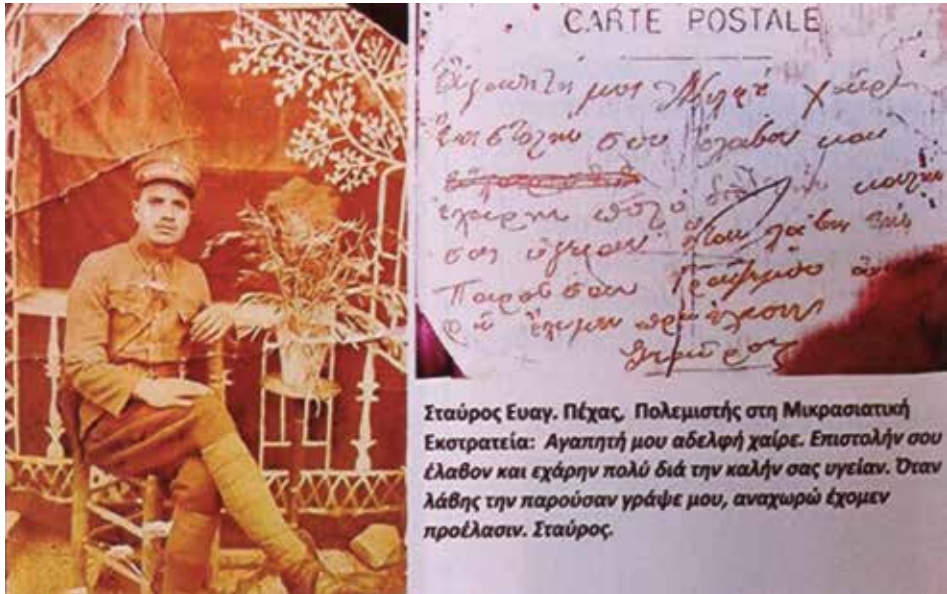 CARTE POSTALE
Αγαπητή μου Αδελφή χαίρε
Επιστολήν σου έλαβον και
εχάρην πολύ διά την καλήν
σας υγείαν όταν λάβης την
Παρούσαν Γράψε μου
έχομεν προέλασιν
Σταύρος
Σταύρος Ευαγ. Πέχας, Πολεμιστής στη Μικρασιατική
Εκστρατεία: Αγαπητή μου αδελφή χαίρε. Επιστολήν σου
έλαβον και εχάρην πολύ διά την καλήν σας υγείαν. Όταν
λάβης την παρούσαν γράψε μου, αναχωρώ έχομεν
προέλασιν. Σταύρος.